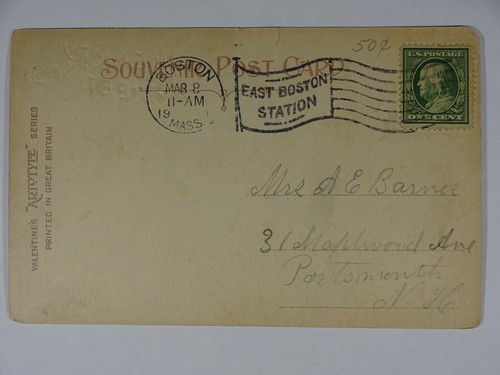 50¢
SOUVENIR POST CARD
U.S. POSTAGE
ONE CENT
BOSTON
MAR 8
11-AM
19
MASS.
EAST BOSTON
STATION
VALENTINE'S "ARTOTYPE" SERIES
PRINTED IN GREAT BRITAIN
Mrs A E Barnes
31 Maplewood Ave
Portsmouth
N. H.